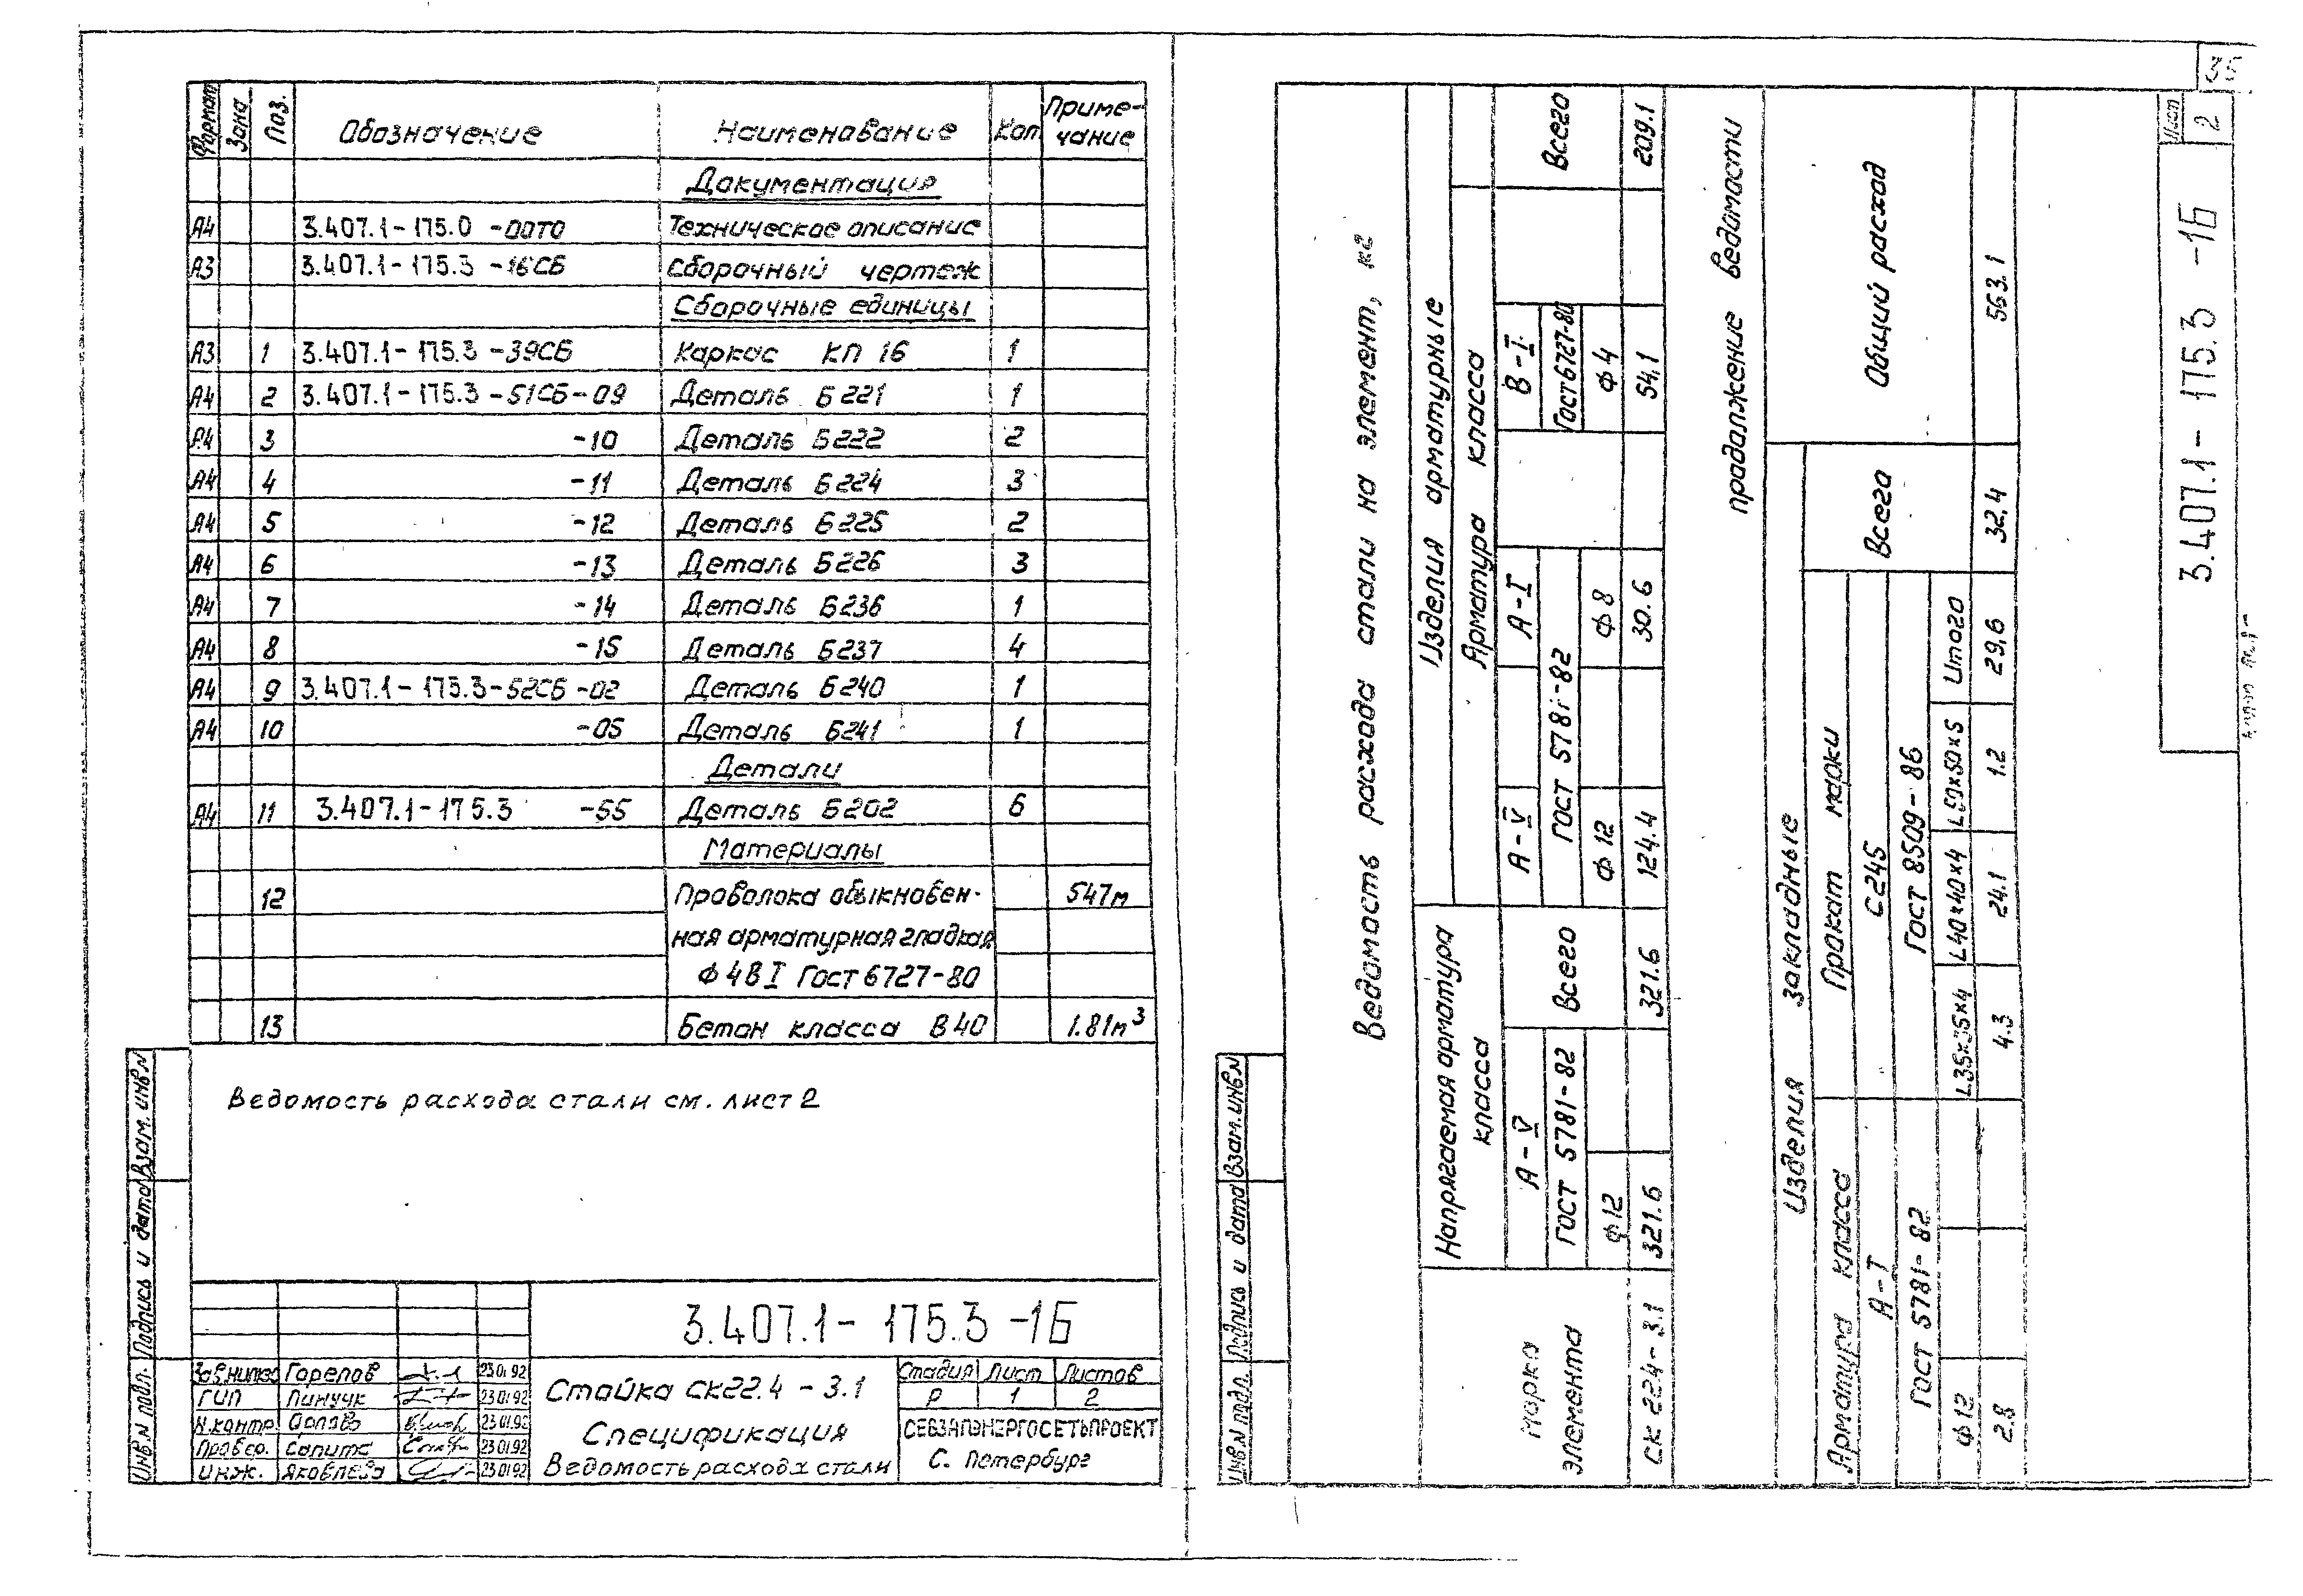 Формат Зона Поз. Обозначение Наименование Кол Приме-чание
Документация
А4 3.407.1-175.0 -00ТО Техническое описание
А3 3.407.1-175.3 -16СБ Сборочный чертеж
Сборочные единицы
А3 1 3.407.1-175.3 -39СБ Каркас КП 16 1
А4 2 3.407.1-175.3 -51СБ-09 Деталь Б221 1
А4 3 -10 Деталь Б222 2
А4 4 -11 Деталь Б224 3
А4 5 -12 Деталь Б225 2
А4 6 -13 Деталь Б226 3
А4 7 -14 Деталь Б236 1
А4 8 -15 Деталь Б237 4
А4 9 3.407.1-175.3-52СБ -02 Деталь Б240 1
А4 10 -05 Деталь Б241 1
Детали
А4 11 3.407.1-175.3 -55 Деталь Б202 6
Материалы
12 Проволока обыкновен- 547м
ная арматурная гладкая
Ф4ВI Гост 6727-80
13 Бетон класса В40 1.81м³
Ведомость расхода стали см. лист 2
3.407.1-175.3-16
Зав.нилкэс Горелов 23.01.92
ГИП Пинчук 23.01.92
Н.контр. 23.01.92
Провер. 23.01.92
Инж. Яковлева 23.01.92
Стойка СК22.4-3.1
Спецификация
Ведомость расхода стали
Стадия Лист Листов
Р 1 2
СЕВЗАПЭНЕРГОСЕТЬПРОЕКТ
С. Петербург
Инв.N подл. Подпись и дата Взам.инв.N
35
Ведомость расхода стали на элемент, кг
Марка элемента
Напрягаемая арматура класса
Изделия арматурные
Арматура класса
А-V Всего А-V А-I В-I Всего
ГОСТ 5781-82 ГОСТ 5781-82 Гост 6727-80
Ф12 Ф12 Ф8 Ф4
СК 22.4-3.1 321.6 321.6 124.4 30.6 54.1 209.1
продалжение ведомасти
Изделия закладные
Общий расход
Арматура класса Пракат марки Всега
А-I С245
ГОСТ 5781-82 ГОСТ 8509-86
Ф12 L35×35×4 L40×40×4 L50×50×5 Итого
2.8 4.3 24.1 1.2 29,6 32,4 563.1
3.407.1-175.3 -16
Лист
2
Инв.N подл. Подпись и дата Взам.инв.N